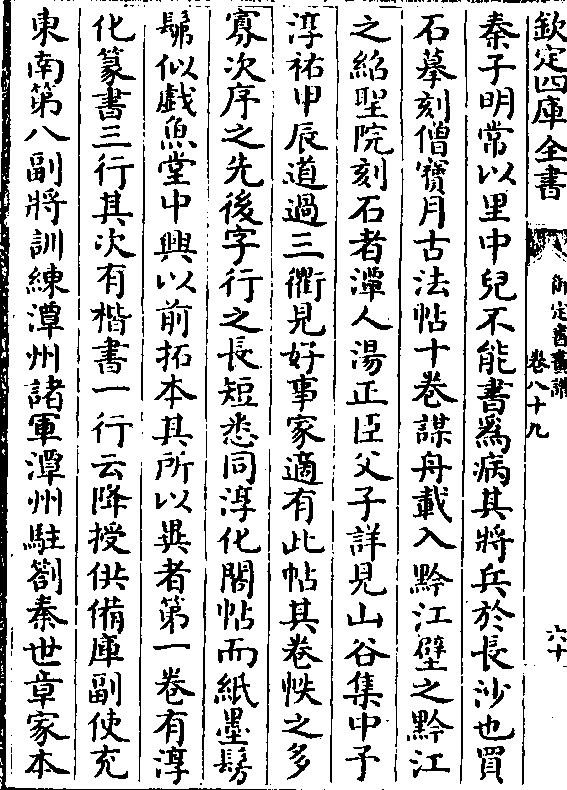 欽定四庫全書
御定書畫譜
卷八十九
六十
秦子明常以里中兒不能書爲病其將兵於長沙也買
石摹刻僧寶月古法帖十卷謀舟載入黔江壁之黔江
之紹聖院刻石者潭人湯正臣父子詳見山谷集中予
淳祐甲辰道過三衢見好事家適有此帖其卷帙之多
寡次序之先後字行之長短悉同淳化閣帖而紙墨髣
髴似戲魚堂中興以前拓本其所以異者第一卷有淳
化篆書三行其次有楷書一行云降授供備庫副使充
東南第八副將訓練潭州諸軍潭州駐劄秦世章家本